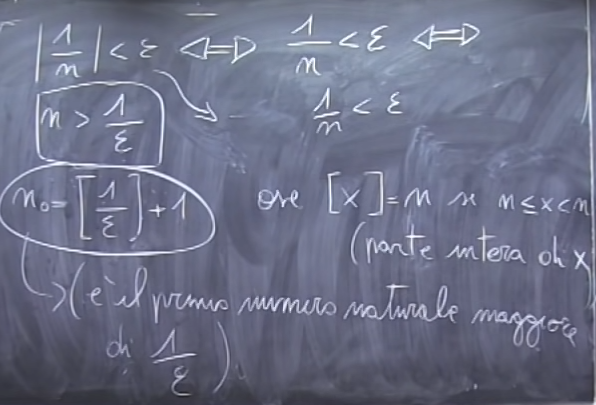 |1/n| < ε ⟺ 1/n < ε ⟺
n > 1/ε 1/n < ε
n₀ = [1/ε] + 1 ove [x] = n se n ≤ x < n
(parte intera di x)
(è il primo numero naturale maggiore
di 1/ε)